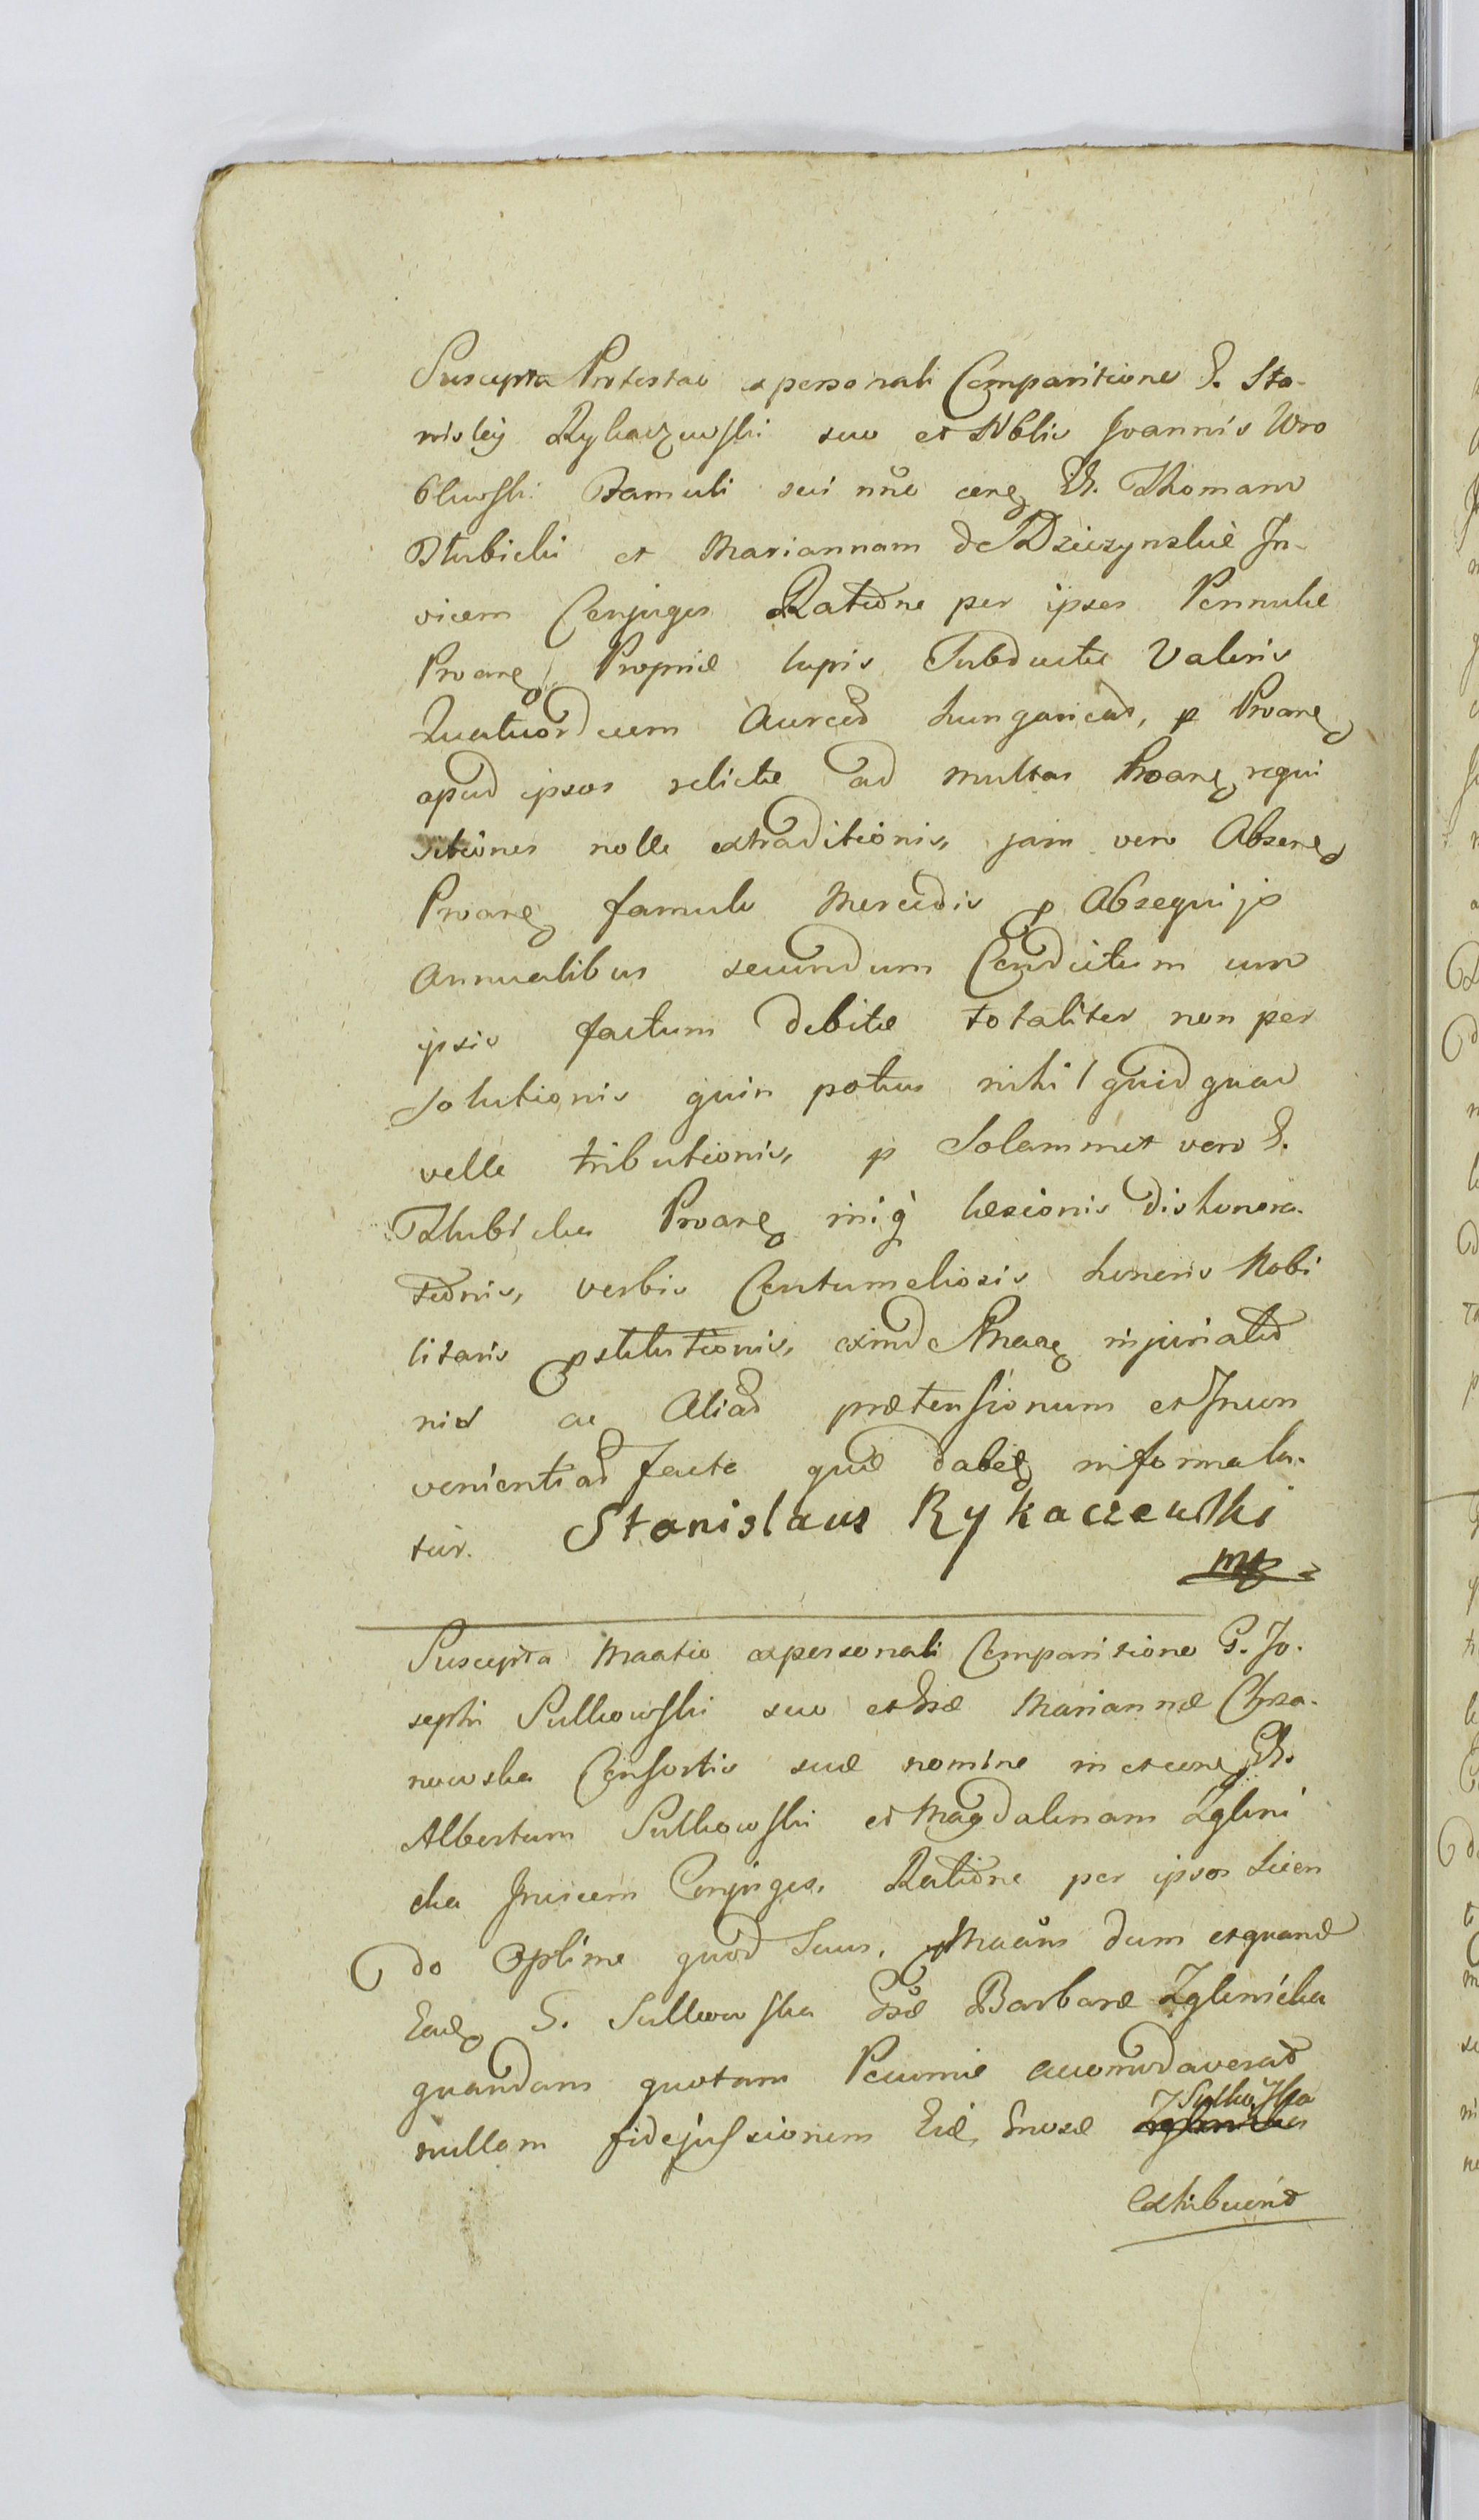 Suscepta Protestao ex personali Comparitione G. Sta-
nislaij Rykaczewski suo et Nblis Joannis Wro
blewski Famuli sui nne cone GG. Thomam
Dłubicki et Mariannam de Dzieczynskie In-
vicem Conjuges Ratione per ipsos Pennulæ
Proane Propriæ lupis Subductæ Valoris
Quatuordecem Aureor hungaricor, p Proane
apud ipsos relictæ ad multas Proane requi
sitiones nolle extraditionis, jam vero Absene
Proane famulo Mercedis p Obsequijs
Annualibus secundum Conductum cum
ipsis factum debitæ totaliter non per
solutionis quin potius nihil quidquam
velle tributionis, p Solammet vero G.
Dłubicka Proane læsionis dishonora-
tionis, verbis Contumeliosis honoris Nobi
litaris pstitutionis, exinde injuriatio
nis ac Aliar prætensionum et Incon
venientiar facta quæ informala-
tur. Stanislaus Rykaczewski
mp
Suscepta Maatio ex personali Comparitione G. Jo-
sephi Sulkowski suo et Gsæ Mariannæ Chrza-
nowska Consortis suæ nomine in et cone GG.
Albertum Sulkowski et Magdalenam Zgleni
cka Invicem Conjuges, Ratione per ipsos Scien
do Optime quod Suus, Maans dum et quando
Eadem G. Sulkowska Gsæ Barbaræ Zglenicka
quandam quotam Pecuniæ accomodaverat
nullam fidejussionem Gnosæ Sulkoska
Exhibuerit